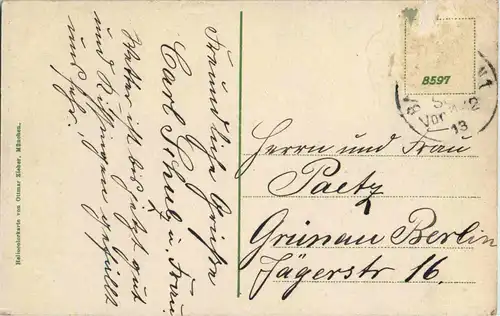 Freundliche Grüße
Carl Schulz u. Frau.
Wetter ist bis jetzt gut
und Kissingen gefällt
uns sehr.
Heliocolorkarte von Ottmar Zieher, München.
8597
Vor
13
Herrn und Frau
Paetz
Grünau Berlin
Jägerstr 16.